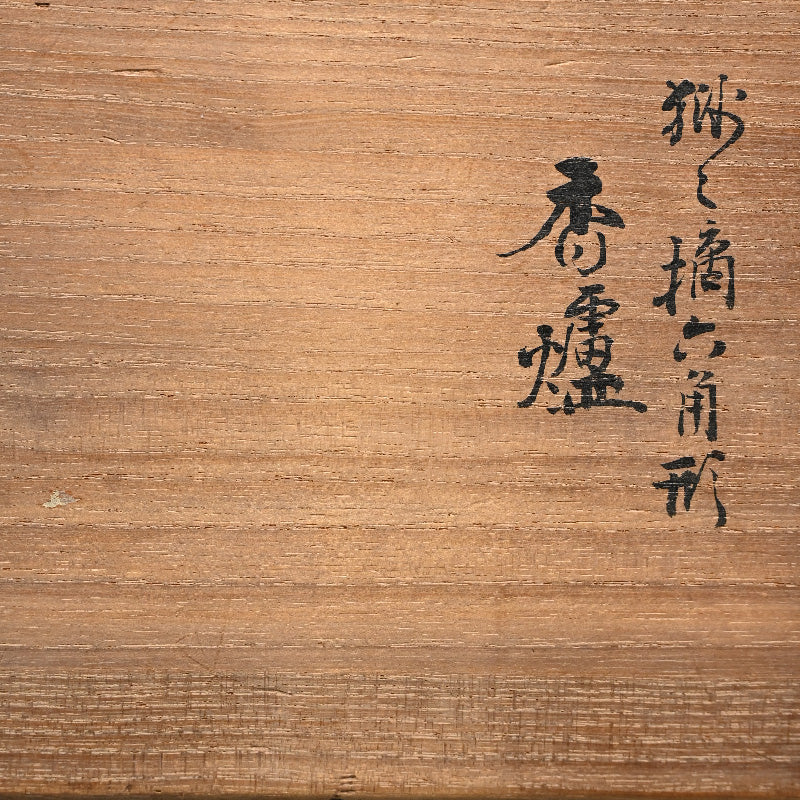 獅々摘六角形
香爐